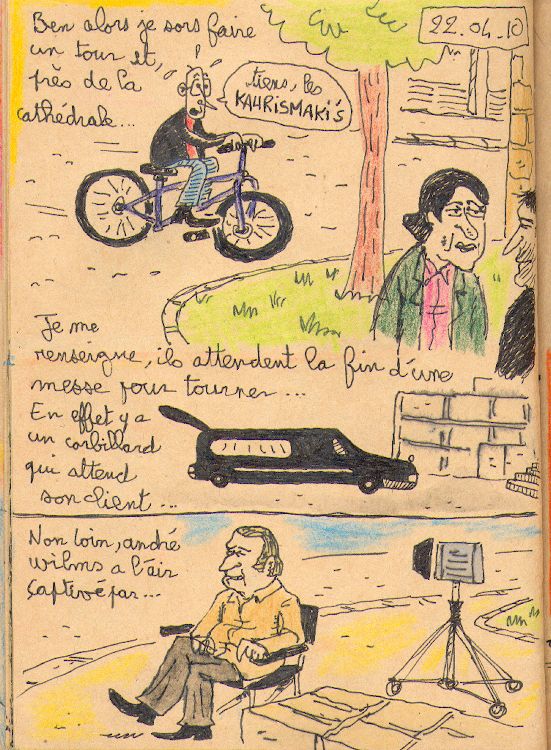 Ben alors je sors faire
un tour et,
près de la
cathédrale...
22.04.10
tiens, les
KAURISMAKI'S
Je me
renseigne, ils attendent la fin d'une
messe pour tourner...
En effet y a
un corbillard
qui attend
son client...
Non loin, andré
wilms a l'air
captivé par...